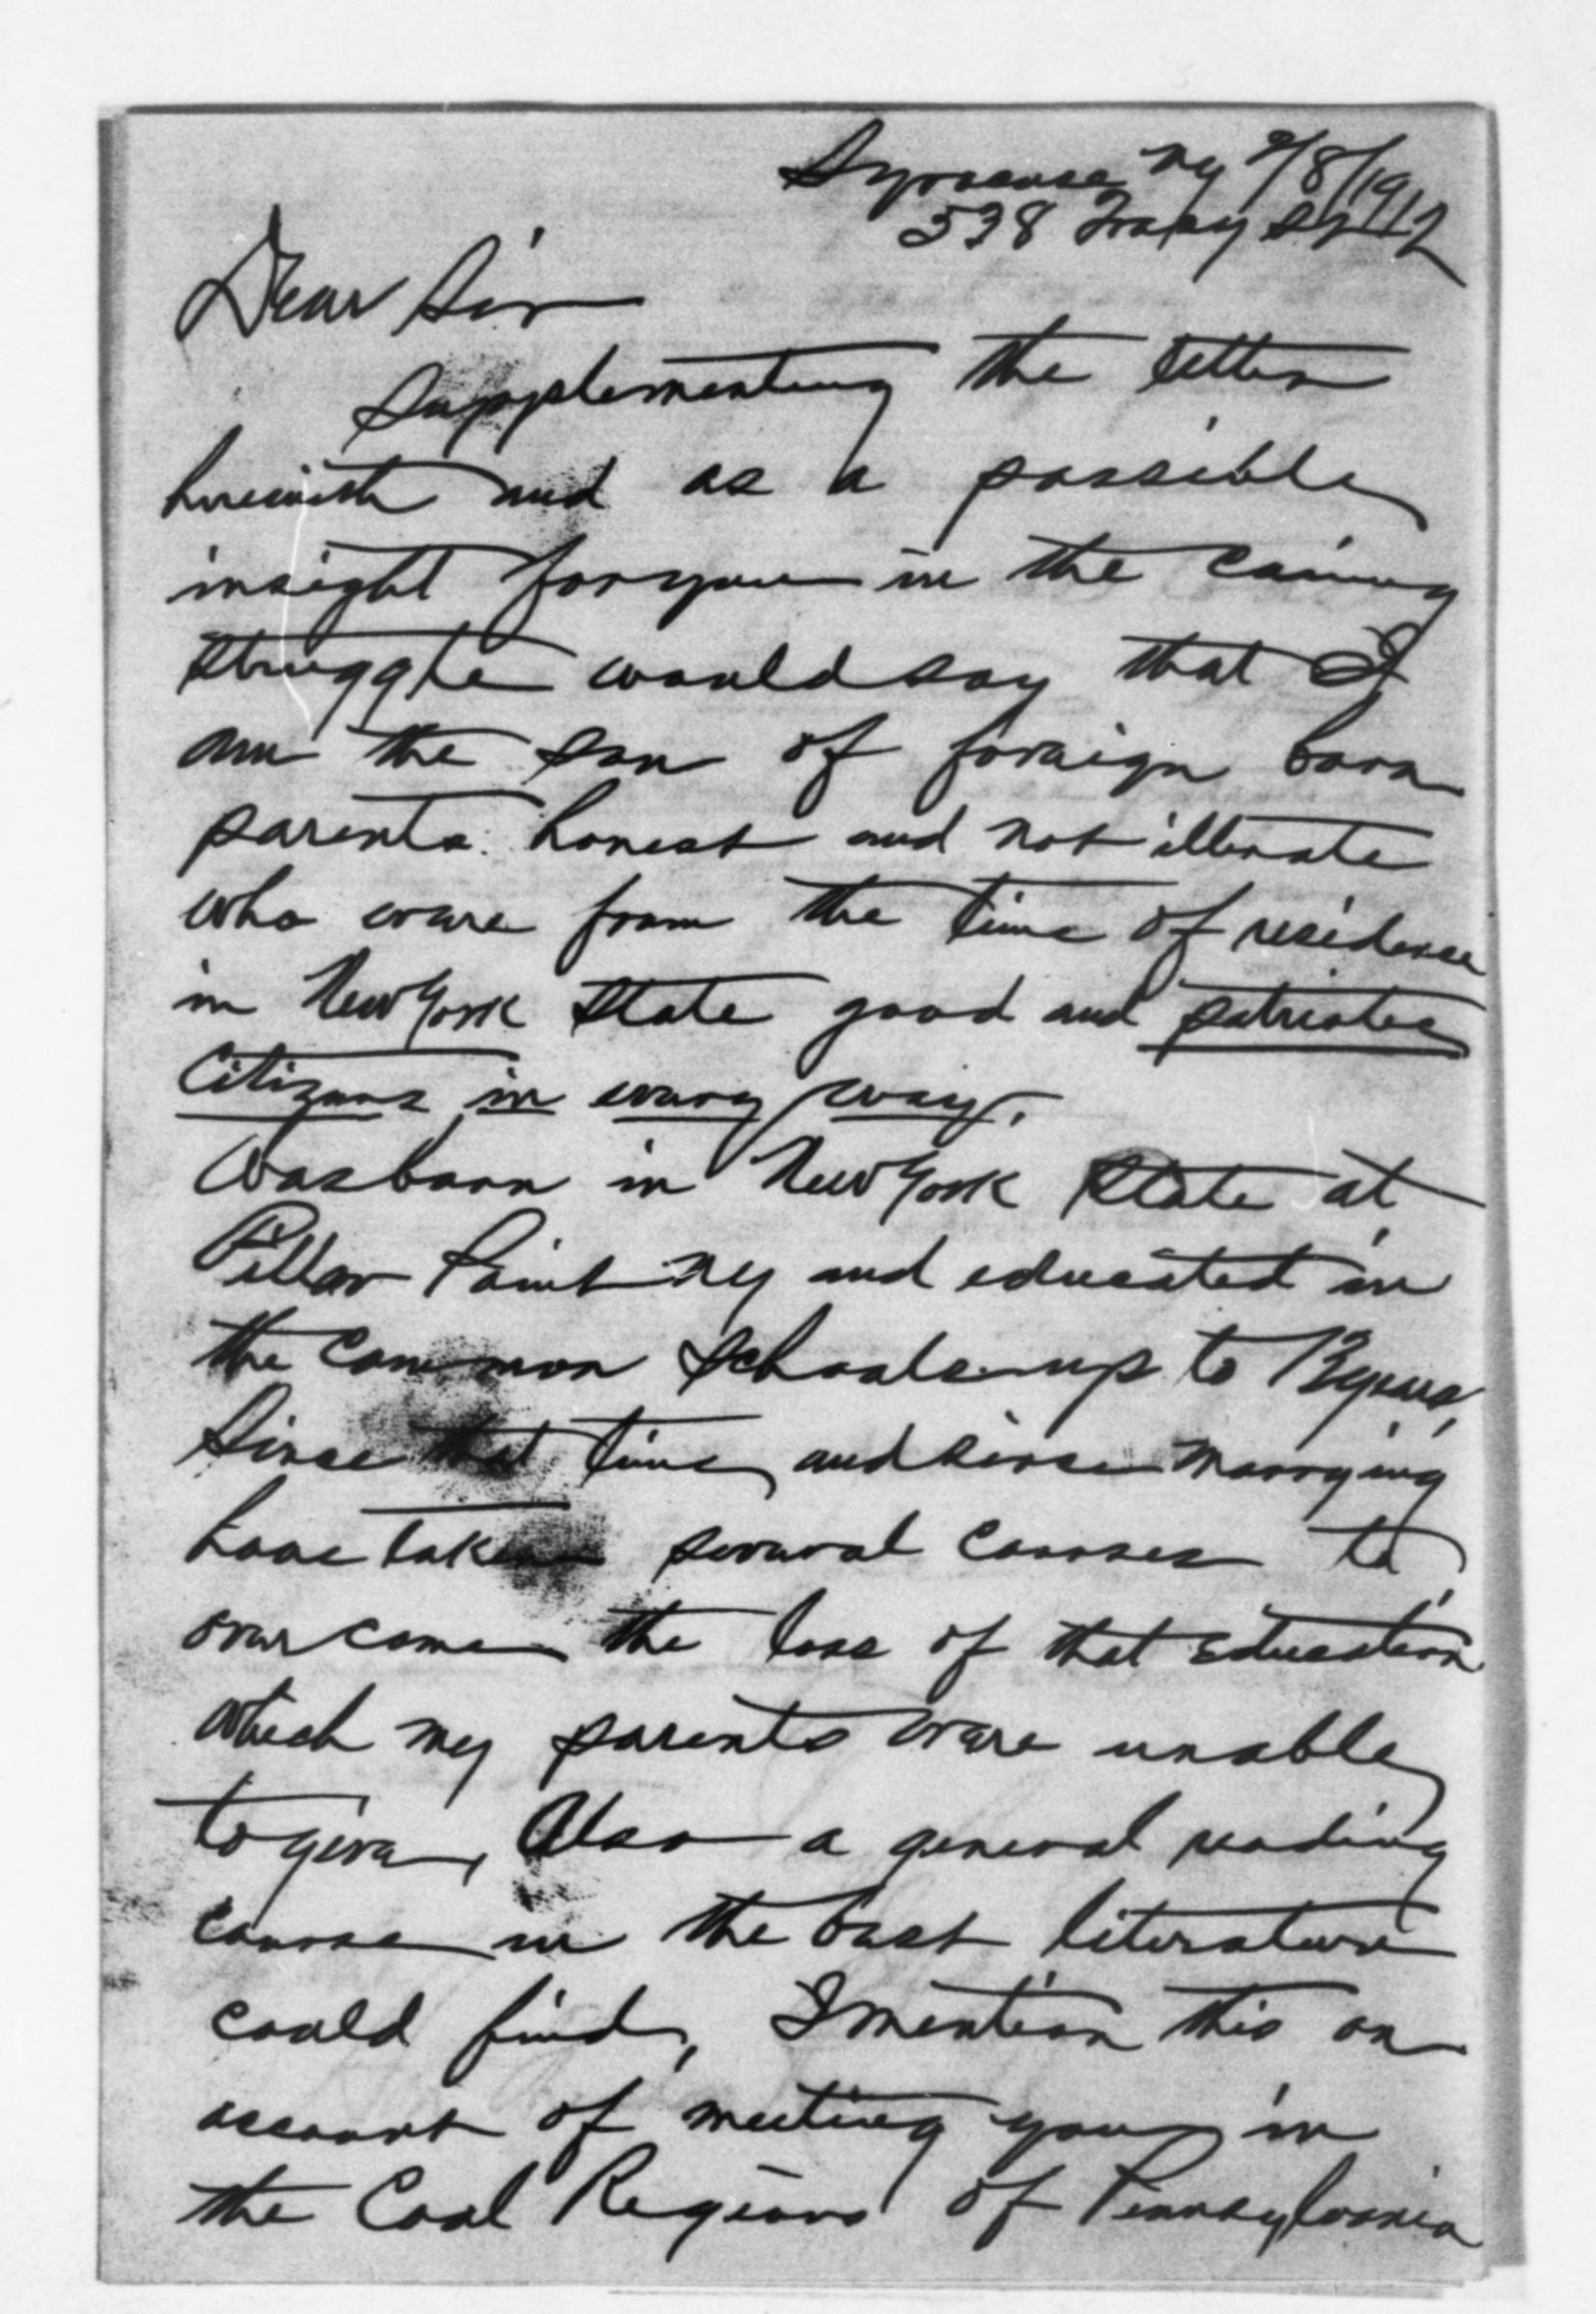 Syracuse NY 9/8/1912
538 Tracy St
Dear Sir
Supplementing the letter
herewith and as a possible
insight for you in the coming
struggle would say that I
am the son of foreign born
parents. honest and not illerate
who were from the time of residence
in New York State good and patriotic
Citizens in every way.
Was born in New York State at
Pillar Point NY and educated in
the Common Schools up to 13 years,
Since that time and since marrying
have taken several Courses to
over come the loss of that Education
which my parents were unable
to give, Also a general reading
course in the best literature
could find, I mention this on
account of meeting you in
the Coal Regions of Pennsylvania